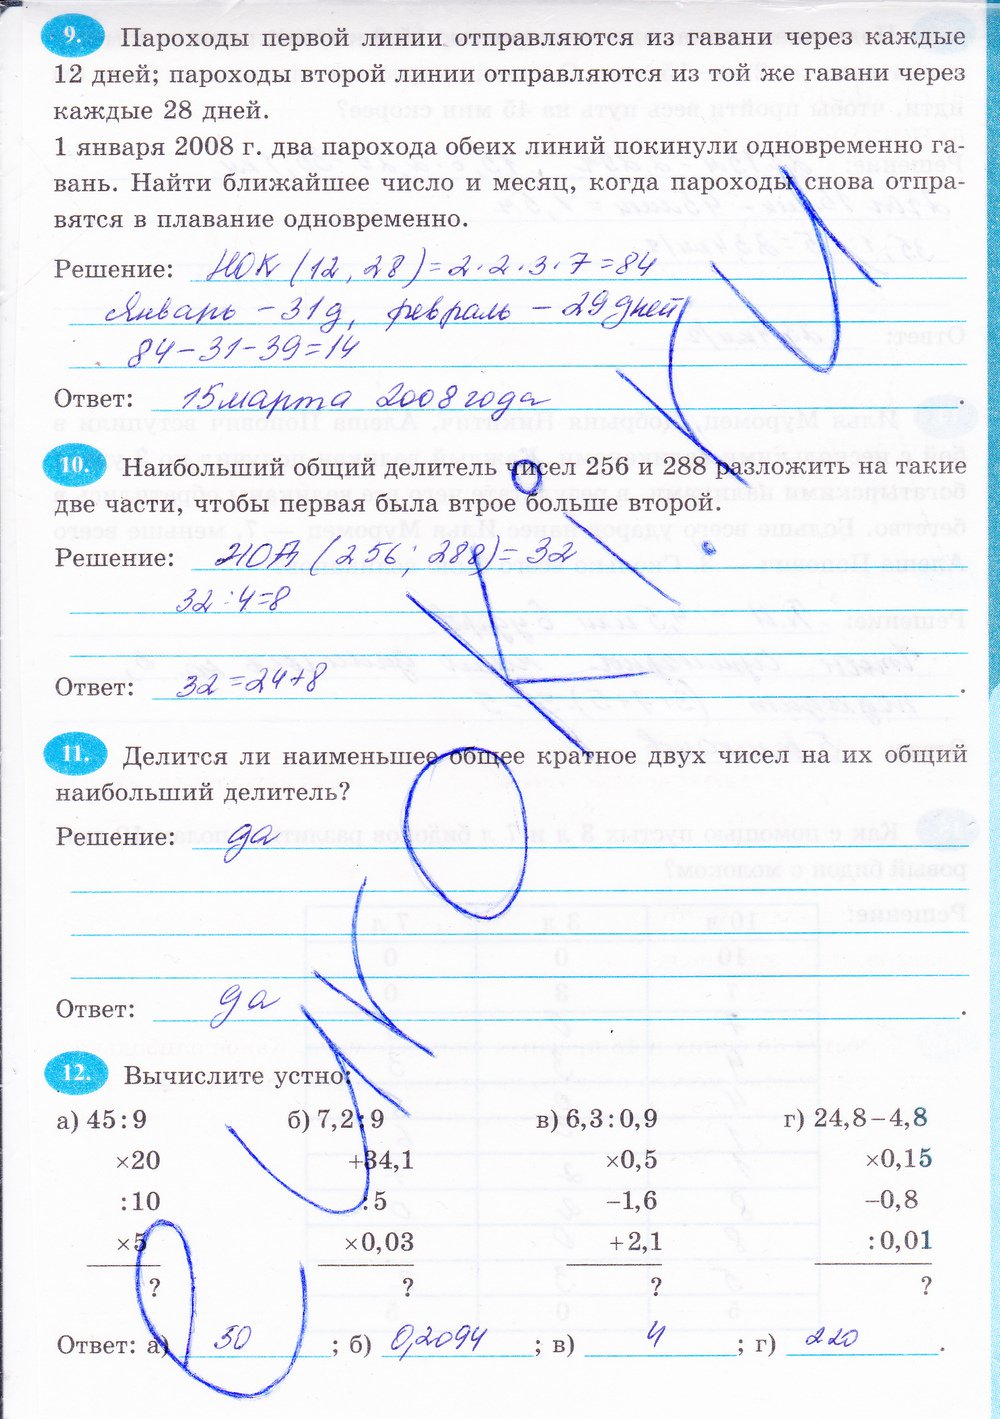 9. Пароходы первой линии отправляются из гавани через каждые
12 дней; пароходы второй линии отправляются из той же гавани через
каждые 28 дней.
1 января 2008 г. два парохода обеих линий покинули одновременно га-
вань. Найти ближайшее число и месяц, когда пароходы снова отпра-
вятся в плавание одновременно.
Решение: НОК (12, 28) = 2·2·3·7 = 84
Январь – 31 д, февраль – 29 дней
84 – 31 – 39 = 14
Ответ: 15 марта 2008 года.
10. Наибольший общий делитель чисел 256 и 288 разложить на такие
две части, чтобы первая была втрое больше второй.
Решение: НОД (256; 288) = 32
32 : 4 = 8
Ответ: 32 = 24 + 8.
11. Делится ли наименьшее общее кратное двух чисел на их общий
наибольший делитель?
Решение: да
Ответ: да.
12. Вычислите устно:
а) 45 : 9 б) 7,2 : 9 в) 6,3 : 0,9 г) 24,8 – 4,8
×20 +34,1 ×0,5 ×0,15
:10 :5 –1,6 –0,8
×5 ×0,03 +2,1 :0,01
? ? ? ?
Ответ: а) 50; б) 0,2094; в) 4; г) 220.